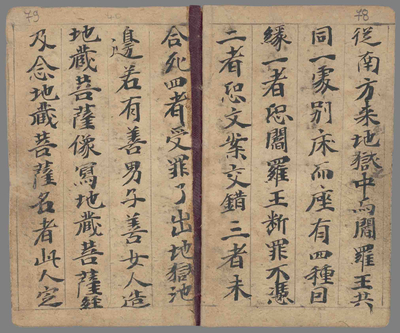 78
從南方来地獄中与閻羅王共
同一處別床而座有四種因
緣一者恐閻羅王断罪不憑
二者恐文案交錯三者未
合死四者受罪了出地獄池
邊若有善男子善女人造
地藏菩薩像寫地藏菩薩經
及念地藏菩薩名者此人定
79